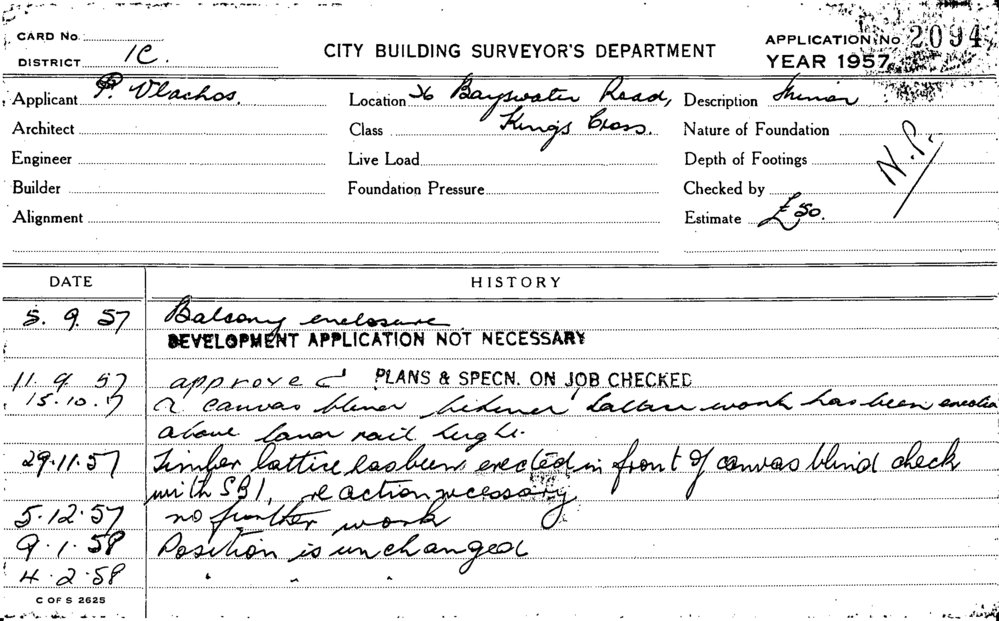 CARD No.
DISTRICT 1C.
CITY BUILDING SURVEYOR'S DEPARTMENT
APPLICATION No. 2094
YEAR 1957
Applicant P. Vlachos.
Location 36 Bayswater Road,
Kings Cross.
Description Minor
Architect
Class
Nature of Foundation
N.P.
Engineer
Live Load
Depth of Footings
Builder
Foundation Pressure
Checked by
Alignment
Estimate £50.
DATE HISTORY
5. 9. 57 Balcony enclosure.
DEVELOPMENT APPLICATION NOT NECESSARY
11. 9. 57 approved PLANS & SPECN. ON JOB CHECKED
15.10.57 canvas work has been erected
above rail
29.11.57 Timber lattice has been erected in front of canvas blind check
with SBI, re action necessary
5.12.57 no further work
9.1.58 Position is unchanged
4.2.58 " " "
C OF S 2625